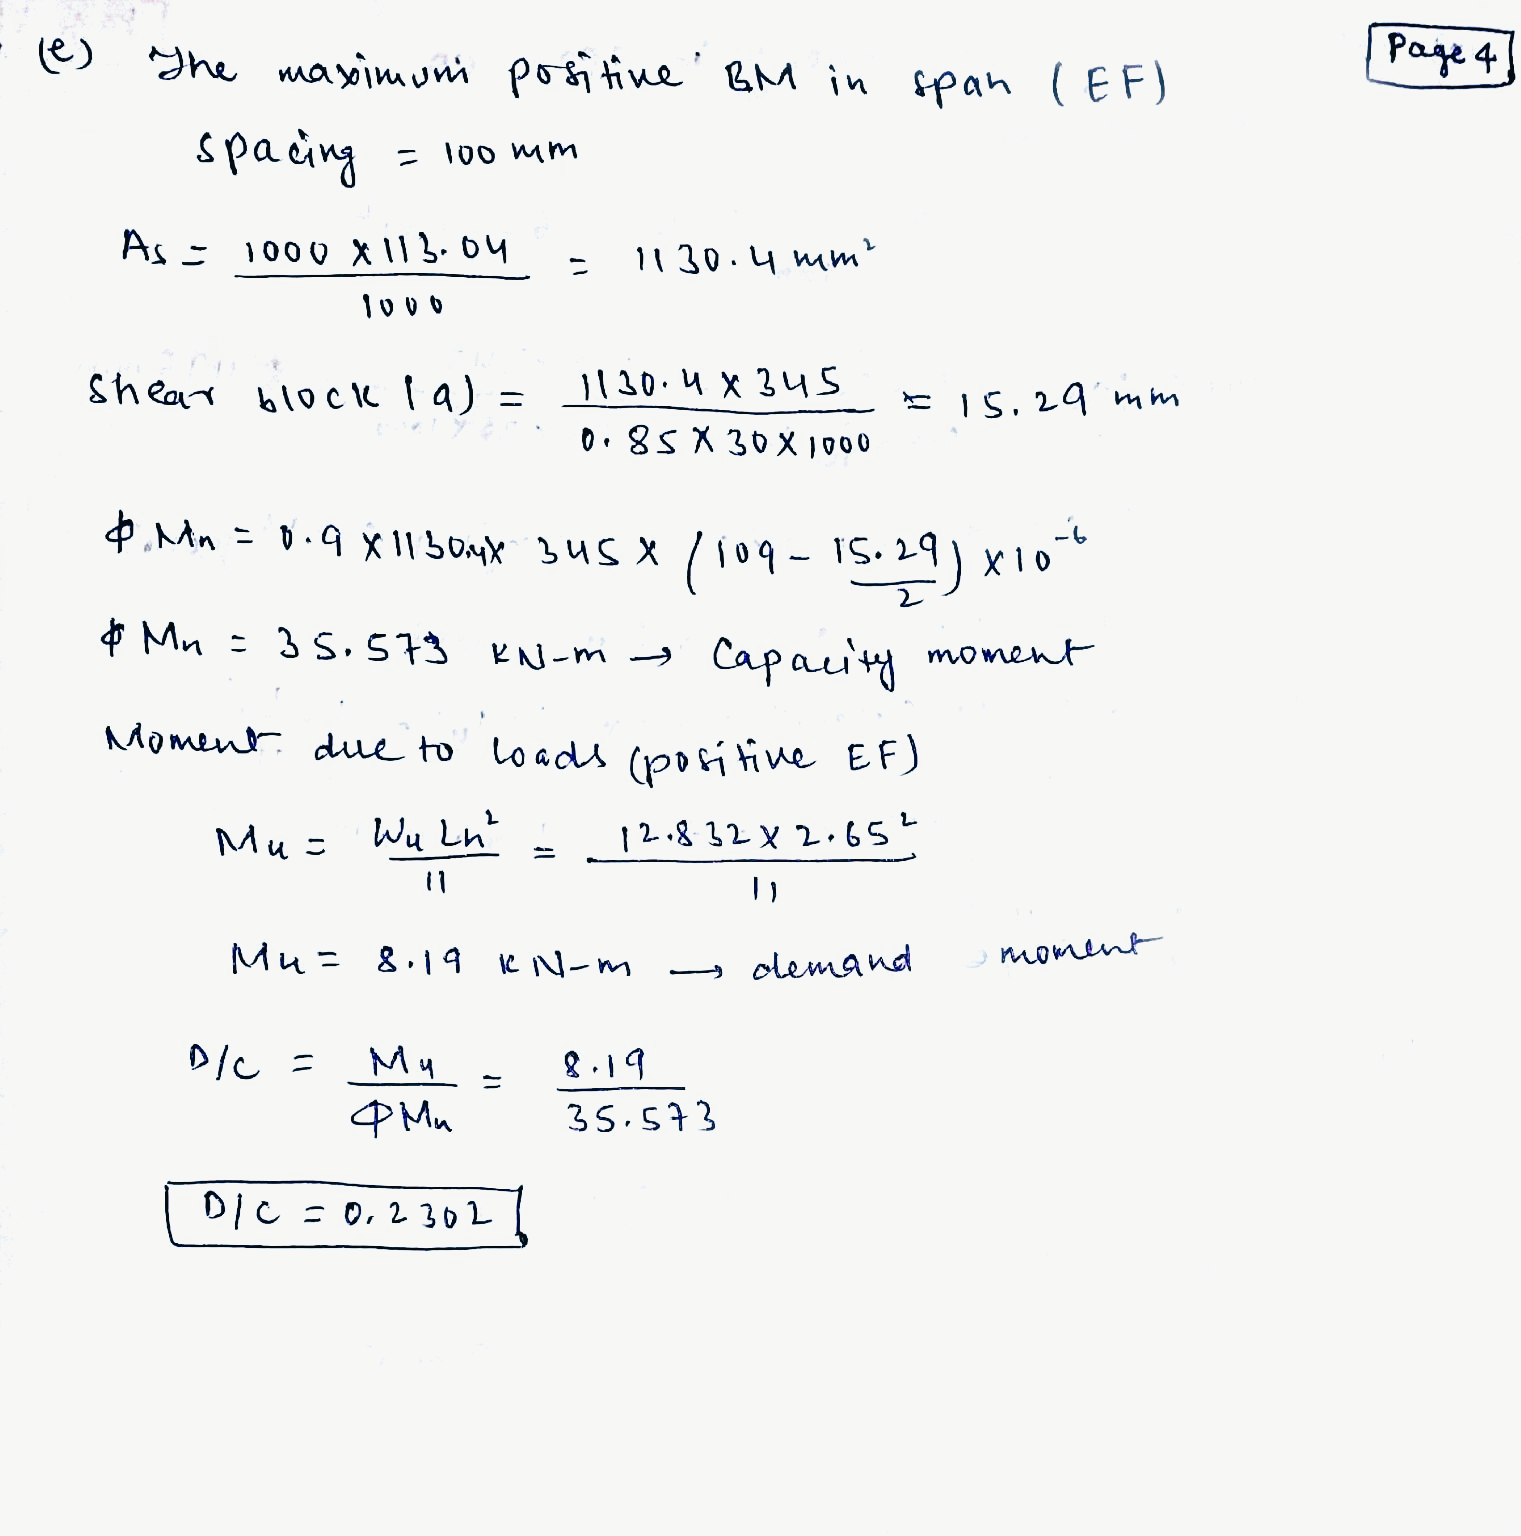 (e) The maximum positive BM in span (EF)
Page 4
spacing = 100 mm
As = 1000 x 113.04 / 1000 = 1130.4 mm²
Shear block (a) = 1130.4 x 345 / 0.85 x 30 x 1000 = 15.29 mm
ϕ Mn = 0.9 x 1130.4 x 345 x (109 - 15.29/2) x 10⁻⁶
ϕ Mn = 35.573 KN-m → Capacity moment
Moment due to loads (positive EF)
Mu = Wu Ln² / 11 = 12.832 x 2.65² / 11
Mu = 8.19 KN-m → demand moment
D/C = Mu / ϕ Mn = 8.19 / 35.573
D/C = 0.2302